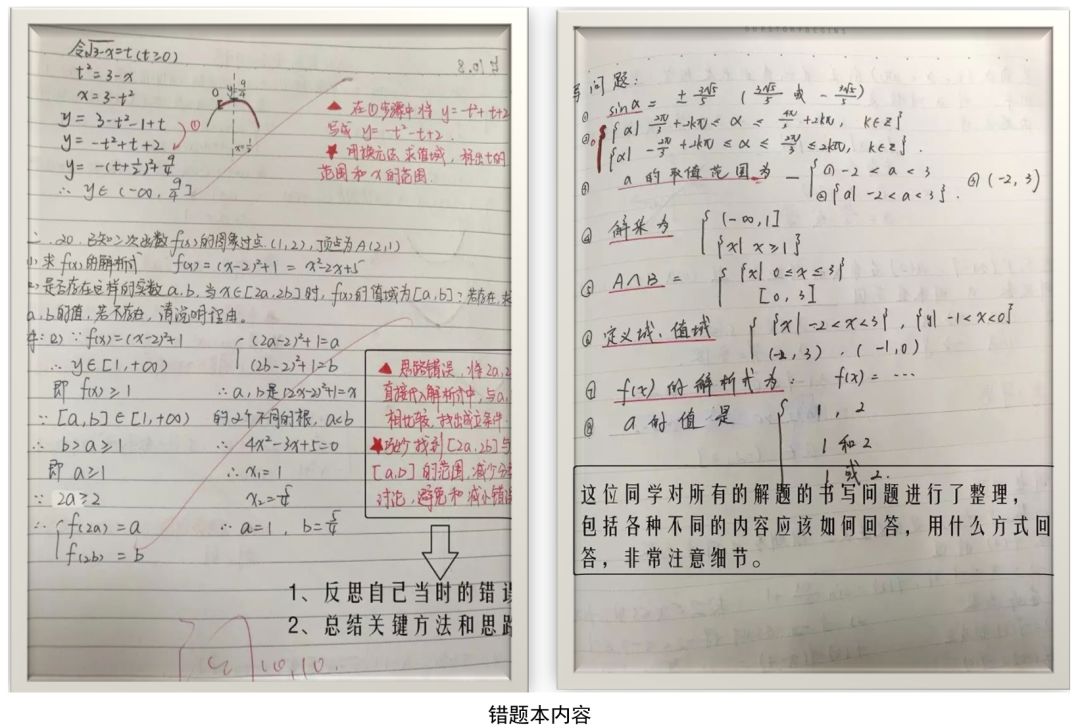 令√3-x=t(t≥0)
t²=3-x
x=3-t²
y= 3-t²-1+t
y= -t²+t+2
y= -(t+½)²+9/4
∴ y∈(-∞, 9/4]
0 y=9/4
x=½
①
▲ 在①步骤中将 y=-t²+t+2
写成 y=-t²-t+2.
★ 用换元法求值域，标出t的
范围和x的范围.
二.20.已知二次函数f(x)的图象过点(1,2),顶点为A(2,1)
(1)求f(x)的解析式 f(x)=(x-2)²+1=x²-2x+5
(2)是否存在这样的实数a,b,当x∈[2a,2b]时,f(x)的值域为[a,b]?若存在,求
a,b的值,若不存在,请说明理由。
解:(2) ∵f(x)=(x-2)²+1
∴ y∈[1,+∞)
即 f(x)≥1
∵ [a,b]∈[1,+∞)
∴ b>a≥1
即 a≥1
∵ 2a≥2
∴ { f(2a)=a
f(2b)=b
{ (2a-2)²+1=a
(2b-2)²+1=b
∴ a,b是(2x-2)²+1=x
的2个不同的根, a<b
∴ 4x²-3x+5=0
∴ x₁=1
x₂=5/4
∴ a=1, b=5/4
▲ 思路错误,将2a,2
直接代入解析式中,与a,
相比较,找出成立条件.
★巧妙找到[2a,2b]与
[a,b]的范围,减少分
讨论,避免和减小错误
1、反思自己当时的错误
2、总结关键方法和思路
10.10.
写问题:
① sinα = ± 3√5/5 (3√5/5 或 - 3√5/5)
② {α| 2π/3+2kπ ≤ α ≤ 4π/3+2kπ, k∈Z}
{α| -2π/3+2kπ ≤ α ≤ 2π/3 ≤2kπ, k∈Z}.
③ a的取值范围为 — { ① -2<a<3 ③(-2,3)
②{a| -2<a<3}.
④ 解集为 { (-∞,1]
{x| x≥1}
⑤ A∩B = { {x| 0≤x≤3}
[0,3]
⑥ 定义域、值域 { {x| -2<x<3}, {y| -1<x<0}
(-2,3). (-1,0)
⑦ f(x)的解析式为: f(x)=…
⑧ a的值是 { 1, 2
1和2
1或2.
这位同学对所有的解题的书写问题进行了整理，
包括各种不同的内容应该如何回答，用什么方式回
答，非常注意细节。
错题本内容